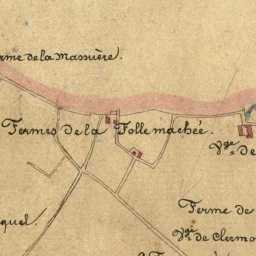 rme de la Massière.
Fermes de la Folle machée.
Vge. de
Ferme de
quel.
Vve. de Clermo